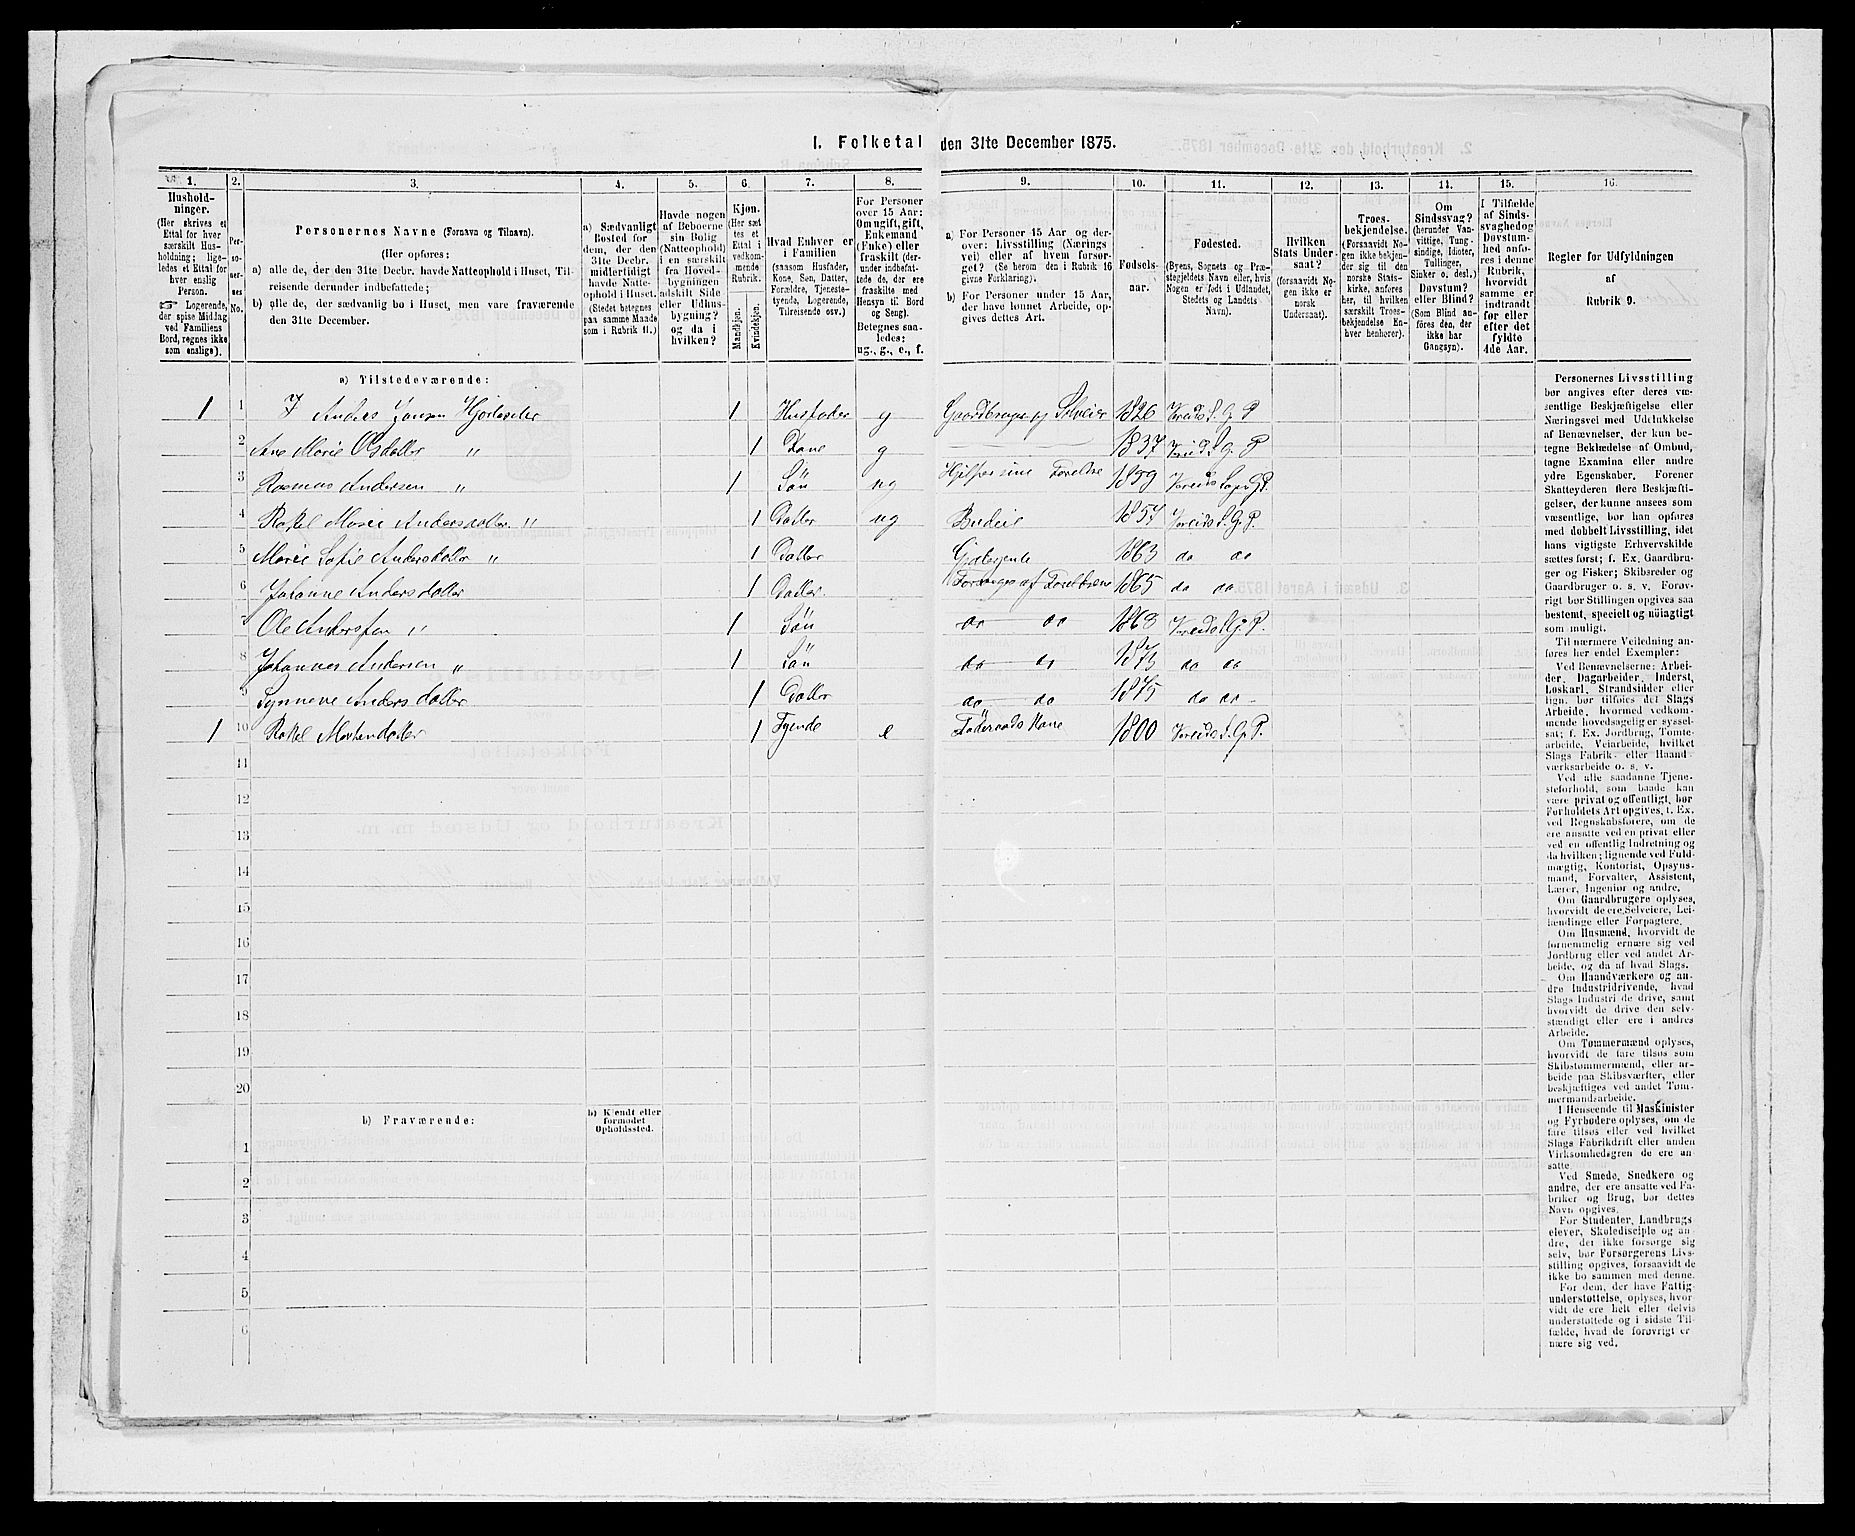 I. Folketal den 31te December 1875.
1. 2. 3. 4. 5. 6. 7. 8. 9. 10. 11. 12. 13. 14. 15. 16.
Husholdninger.
(Her skrives et
Ettal for hver
særskilt Hus-
holdning; lige-
ledes et Ettal for
hver enslig
Person.
☞ Logerende,
der spise Middag
ved Familiens
Bord, regnes ikke
som enslige).
Per-
so-
ner-
nes
No.
Personernes Navne (Fornavn og Tilnavn).
(Her opføres:
a) alle de, der den 31te Decbr. havde Natteophold i Huset, Til-
reisende derunder indbefattede;
b) alle de, der sædvanlig bo i Huset, men vare fraværende
den 31te December.
a) Sædvanligt
Bosted for
dem, der den
31te Decbr.
midlertidigt
havde Natte-
ophold i Huset.
(Stedet betegnes
paa samme Maade
som i Rubrik 11.)
Havde nogen
af Beboerne
sin Bolig
(Natteophold)
i en særskilt
fra Hoved-
bygningen
adskilt Side
eller Udhus-
bygning?
og da i
hvilken?
Kjøn.
(Her sæt-
tes et
Ettal i
vedkom-
mende
Rubrik.
Mandkjøn.
Kvindekjøn.
Hvad Enhver er
i Familien
(saasom Husfader,
Kone, Søn, Datter,
Forældre, Tjeneste-
tyende, Logerende,
Tilreisende osv.)
For Personer
over 15 Aar:
Om ugift, gift,
Enkemand
(Enke) eller
fraskilt (der-
under indbefat-
tede de, der ere
fraskilte med
Hensyn til Bord
og Seng).
Betegnes saa-
ledes:
ug., g., e., f.
a) For Personer 15 Aar og der-
over: Livsstilling (Nærings
vei) eller af hvem forsør-
get? (Se herom den i Rubrik 16
givne Forklaring).
b) For Personer under 15 Aar,
der have lønnet Arbeide, op-
gives dettes Art.
Fødsels-
aar.
Fødested.
(Byens, Sognets og Præ-
stegjeldets Navn eller, hvis
Nogen er født i Udlandet,
Stedets og Landets
Navn).
Hvilken
Stats Under-
saat?
(forsaavidt No-
gen ikke er
norsk
Undersaat).
Troes-
bekjendelse.
(Forsaavidt No-
gen ikke bekjen-
der sig til den
norske Stats-
kirke, anføres
her, til hvilken
særskilt Troes-
bekjendelse En-
hver henhører).
Om
Sindssvag?
(herunder Van-
vittige, Tung-
sindige, Idioter,
Tullinger,
Sinker o. desl.)
Døvstum?
eller Blind?
(Som Blind an-
føres den, der
ikke har
Gangsyn).
I Tilfælde
af Sinds-
svaghed og
Døvstum-
hed anfø-
res i denne
Rubrik,
hvorvidt
samme er
indtraadt
før eller
efter det
fyldte
4de Aar.
Regler for Udfyldningen
af
Rubrik 9.
a) Tilstedeværende:
1 1 Anders Jansen Hjorteseter 1 Husfader g Gaardbruger og Selveier 1826 S. G. P
2 Ane Marie Olsdatter " 1 Kone g 1837 S. G. P
3 Rasmus Andersen " 1 Søn ug Hjelper sine Foreldre 1859
4 Rakel Marie Andersdatter " 1 Datter ug Budeie 1857 S. G. P.
5 Marie Sofie Andersdatter " 1 Datter Gjetergente 1863 do do
6 Johanne Andersdatter 1 Datter Forsørges af Foreldrene 1865 do do
7 Ole Andersen " 1 Søn do do 1868 S. G. P.
8 Johannes Andersen " 1 Søn do do 1873 do do
9 Synneve Andersdatter 1 Datter do do 1875 do do
1 10 Rakel Mortendatter 1 Tyende e Føderaads Kone 1800 S. G. P.
11
12
13
14
15
16
17
18
19
20
b) Fraværende:
b) Kjendt eller
formodet
Opholdssted.
1
2
3
4
5
6
Personernes Livsstilling
bør angives efter deres væ-
sentlige Beskjæftigelse eller
Næringsvei med Udelukkelse
af Benævnelser, der kun be-
tegne Beklædelse af Ombud,
tagne Examina eller andre
ydre Egenskaber. Forener
Skatteyderen flere Beskjæfti-
gelser, der kunne ansees som
væsentlige, bør han opføres
med dobbelt Livsstilling, idet
hans vigtigste Erhvervskilde
sættes først; f. Ex. Gaardbru-
ger og Fisker; Skibsreder og
Gaardbruger o. s. v. Forøv-
rigt bør Stillingen opgives saa
bestemt, specielt og nøiagtigt
som muligt.
Til nærmere Veiledning an-
føres her endel Exempler:
Ved Benævnelserne: Arbei-
der, Dagarbeider, Inderst,
Løskarl, Strandsidder eller
lign. bør tilføies det Slags
Arbeide, hvormed vedkom-
mende hovedsagelig er syssel-
sat; f. Ex. Jordbrug, Tomte-
arbeide, Veiarbeide, hvilket
Slags Fabrik- eller Haand-
værksarbeide o. s. v.
Ved alle saadanne Tjene-
steforhold, som baade kan
være privat og offentligt, bør
Forholdets Art opgives, t. Ex.
ved Regnskabsførere, om de
ere ansatte ved en privat eller
ved en offentlig Indretning og
da hvilken; lignende ved Fuld-
mægtig, Kontorist, Opsyns-
mand, Forvalter, Assistent,
Lærer, Ingeniør og andre.
Om Gaardbrugere oplyses,
hvorvidt de ere Selveiere, Lei-
lændinge eller Forpagtere.
Om Husmænd, hvorvidt de
fornemmelig ernære sig ved
Jordbrug eller ved andet Ar-
beide, og da af hvad Slags.
Om Haandværkere og an-
dre Industridrivende, hvad
Slags Industri de drive, samt
hvorvidt de drive den selv-
stændigt eller ere i andres
Arbeide.
Om Tømmermænd oplyses,
hvorvidt de fare tilsøs som
Skibstømmermænd, eller ar-
beide paa Skibsværfter, eller
beskjæftiges ved andet Tøm-
mermandsarbeide.
I Henseende til Maskinister
og Fyrbødere oplyses, om de
fare tilsøs eller ved hvilket
Slags Fabrikdrift eller anden
Virksomhedsgren de ere an-
satte.
Ved Smede, Snedkere og
andre, der ere ansatte ved Fa-
briker og Brug, bør dettes
Navn opgives.
For Studenter, Landbrugs
elever, Skoledisciple og an-
dre, der ikke forsørge sig
selv, bør Forsørgerens Livs-
stilling opgives, forsaavidt de
ikke bo sammen med denne.
For dem, der have Fattig-
understøttelse, oplyses, hvor-
vidt de ere helt eller delvis
understøttede og i sidste Til-
fælde, hvad de forøvrigt er-
nære sig ved.